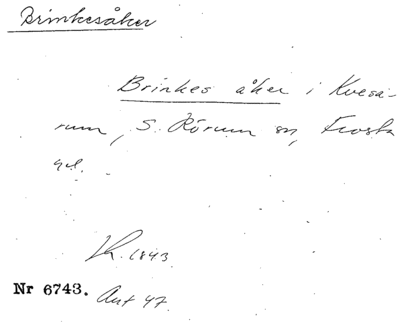 Brinkesåker
Brinkes åker i Kvesa-
rum, S. Rörum sn, Frosta
hd.
1843.
Nr 6743. Ant 47.